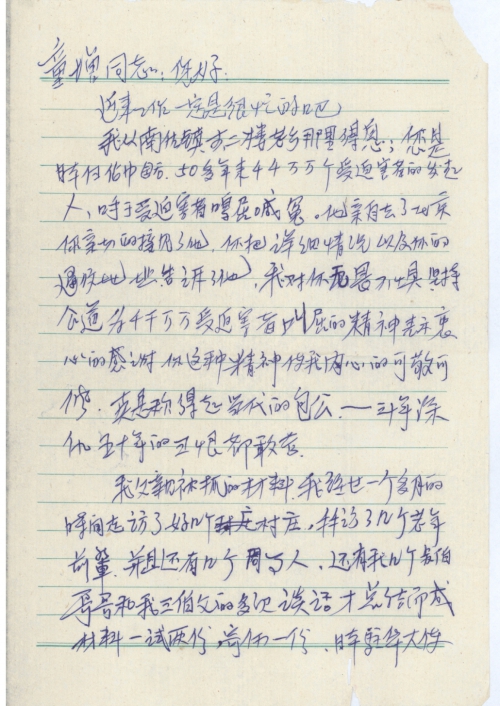 童增同志：你好：
近来工作一定是很忙的吧
我从南佐镇 二楼老乡那里得息：您是
日本付佔中国 50多年来44万万个受迫害者的发起
人，呼于受迫害者鸣屈喊冤。他亲自去了北京
你亲切的接见了他，你把详细情况以及你的
通信地址告诉了他，我对你无畏不惧坚持
公道为4千万万受迫害者叫屈的精神表示衷
心的感谢 你这种精神使我内心的可敬可
佩。真是称得起当代的包公。——三年深
仇五十年的旦恨都敢查。
我父亲被抓的材料，我经过一个多月的
时间走访了好几个村庄，拜访了几个老年
前辈，并且还有几个周写人，还有我几个叔伯
哥哥和我三伯父的多次谈话才总结而成
材料一试两份，寄你一份，日本驻华大使